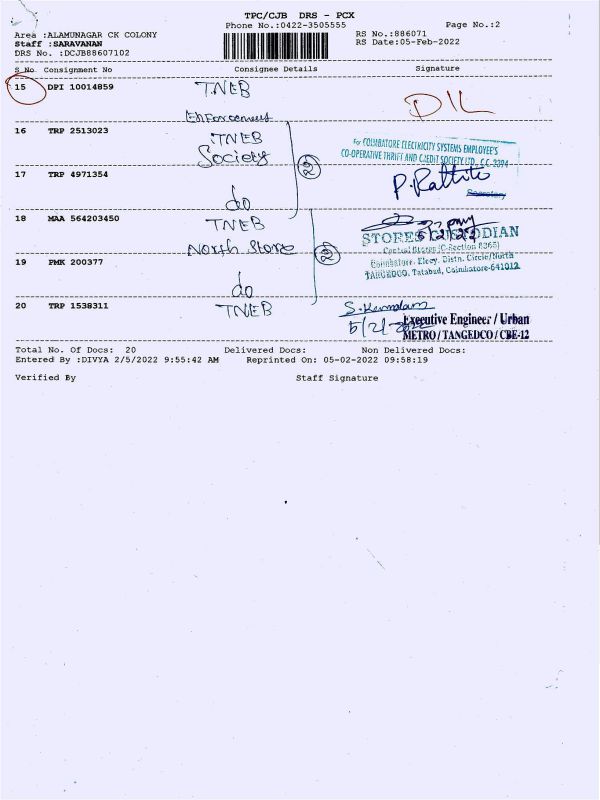 TPC/CJB DRS - PCX
Phone No.:0422-3505555
Page No.:2
Area :ALAMUNAGAR CK COLONY
RS No.:886071
Staff :SARAVANAN
RS Date:05-Feb-2022
DRS No. :DCJB88607102
S_No. Consignment No Consignee Details Signature
15 DPI 10014859 TNEB
DIL
16 TRP 2513023 TNEB
Society
2
For COIMBATORE ELECTRICITY SYSTEMS EMPLOYEE'S
CO-OPERATIVE THRIFT AND CREDIT SOCIETY LTD., C.C. 2294
17 TRP 4971354 do
Secretary
18 MAA 564203450 TNEB
North Store
2
STORES CUSTODIAN
Central Stores (C-Section 8365)
Coimbatore. Elecy. Distn. Circle/North
TANGEDCO, Tatabad, Coimbatore-641012
19 PMK 200377 do
20 TRP 1538311 TNEB
Executive Engineer / Urban
METRO / TANGEDCO / CBE-12
Total No. Of Docs: 20 Delivered Docs: Non Delivered Docs:
Entered By :DIVYA 2/5/2022 9:55:42 AM Reprinted On: 05-02-2022 09:58:19
Verified By Staff Signature